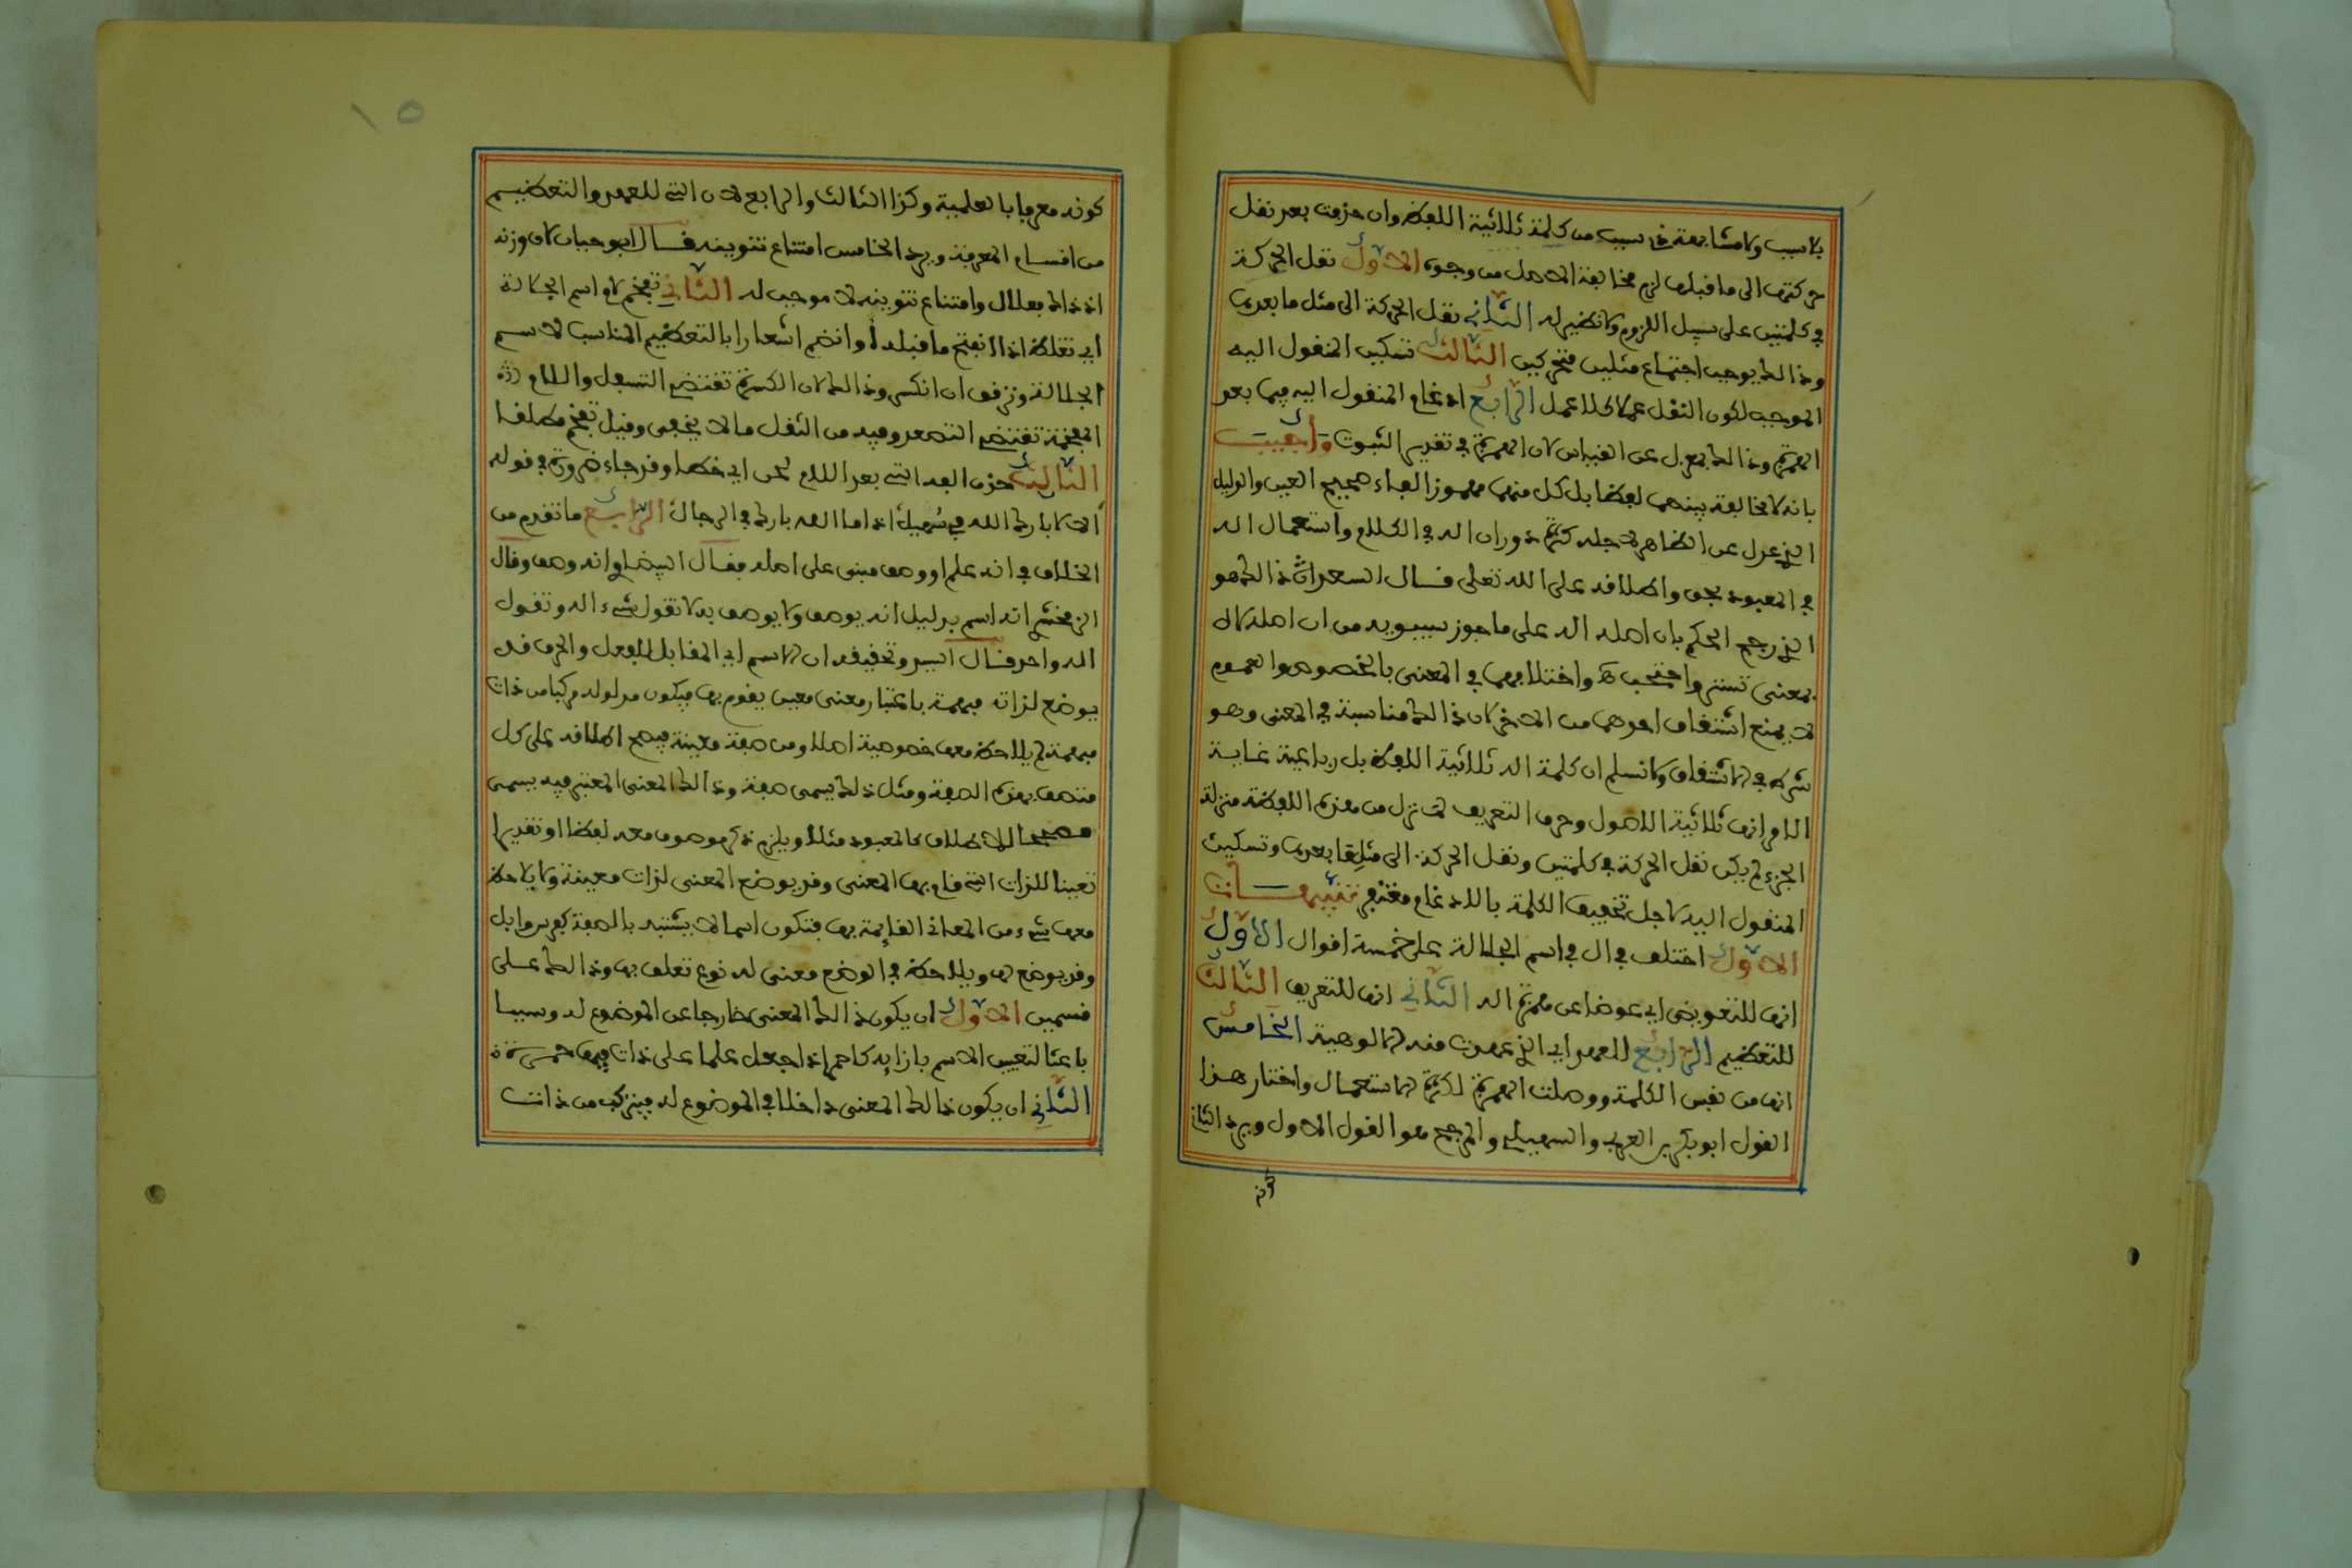 بلا سبب ولا مشابهة ذي سبب من كلمة ثلاثية اللفظ وان حذفت بعد نقل
حركتها الى ما قبلها لزم مخالفة الاصل من وجوه الاول نقل الحركة
في كلمتين على سبيل اللزوم ولا نظير له الثاني نقل الحركة الى مثل ما بعدها
وذالك يوجب اجتماع مثلين متحركين الثالث تسكين المنقول اليه
الموجب لكون النقل عملا كلا عمل الرابع ادغام المنقول اليه فيما بعد
الهمزة وذالك بمعزل عن القياس لان الهمزة في تقدير الثبوت واجيب
بانه لا مخالفة بينهما لفظا بل كل منهما مهموز الفاء صحيح العين والدليل
الذي عدل عن الظاهر لاجله كثرة دوران اله في الكلام واستعمال اله
في المعبود بحق واطلاقه على الله تعلى قال السعد ان ذالك هو
الذي رجح الحكم بان اصله اله على ما جوز سيبويه من ان اصله لاه
بمعنى تستر واحتجب واختلافهما في المعنى بالخصوص والعموم
لا يمنع اشتقاق احدهما من الاخر لان ذالك مناسبة في المعنى وهو
شرط في الاشتقاق ولا نسلم ان كلمة اله ثلاثية اللفظ بل رباعية غاية
الامر انها ثلاثية الاصول وحرف التعريف لما نزل من هذه اللفظة منزلة
الجزء لم يكن نقل الحركة في كلمتين ونقل الحركة الى مثل ما بعدها وتسكين
المنقول اليه لاجل تخفيف الكلمة بالادغام مغتفر تنبيهات
الاول اختلف في ال في اسم الجلالة على خمسة اقوال الاول
انها للتعويض اي عوضا عن همزة اله الثاني انها للتعريف الثالث
للتعظيم الرابع للعهد اي الذي عهدت منه الالوهية الخامس
انها من نفس الكلمة ووصلت الهمزة لكثرة الاستعمال واختار هذا
القول ابو بكر بن العربي والسهيلي والمرجح هو القول الاول ويرد الثاني
كونه
١٥
كونه معرفا بالعلمية وكذا الثالث والرابع لان التي للعهد والتعظيم
من اقسام المعرفة ويرد الخامس امتناع تنوينه قال ابو حيان لان وزنه
اذ ذاك فعال وامتناع تنوينه لا موجب له الثاني تفخم لام اسم الجلالة
اي تغلظ اذا انفتح ما قبله او انضم اشعارا بالتعظيم المناسب لاسم
الجلالة وترقق ان انكسر وذالك لان الكسرة تقتضي التسفل واللام
المفخمة تقتضي التصعد وفيه من الثقل ما لا يخفى وقيل تفخم مطلقا
الثالث حذف الفه التي بعد اللام لحن اي خطا وقد جاء ضرورة في قوله
الا لا بارك الله في سهيل اذا ما الله بارك في الرجال الرابع ما تقدم من
الخلاف في انه علم او وصف مبني على اصله فقال البيضاوي انه وصف وقال
الزمخشري انه اسم بدليل انه يوصف ولا يوصف به لا تقول شيء اله وتقول
اله واحد قال السيد وتحقيقه ان الاسم اي المقابل للفعل والحرف قد
يوضع لذات مبهمة باعتبار معنى معين يقوم بها فيكون مدلوله مركبا من ذات
مبهمة لم يلاحظ معها خصوصية اصلا ومن صفة معينة فيصح اطلاقه على كل
متصف بهذه الصفة ومثل ذلك يسمى صفة وذالك المعنى المعتبر فيه يسمى
مصحح الاطلاق كالمعبود مثلا ويلزم ذكر موصوف معه لفظا او تقديرا
تعيينا للذات التي قام بها المعنى وقد يوضع المعنى لذات معينة ولا يلاحظ
معها شيء من المعاني القائمة بها فتكون اسما لا يشتبه بالصفة كفرس وابل
وقد يوضع لها ويلاحظ في الوضع معنى له نوع تعلق بها وذالك على
قسمين الاول ان يكون ذالك المعنى خارجا عن الموضوع له وسببا
باعثا لتعيين الاسم بازايه كاحمر اذا جعل علما على ذات فيها حمرة
الثاني ان يكون ذالك المعنى داخلا في الموضوع له فيتركب من ذات